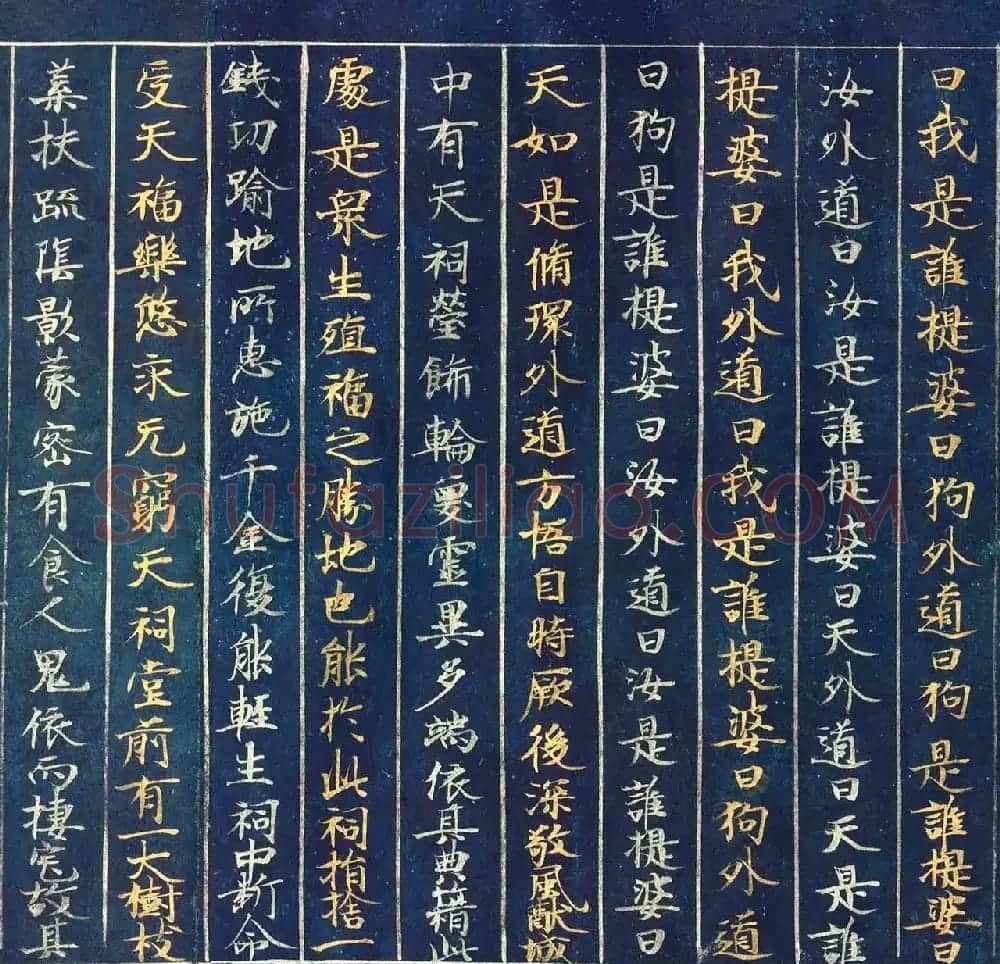 曰我是誰提婆曰狗外道曰狗是誰提婆曰
汝外道曰汝是誰提婆曰天外道曰天是誰
提婆曰我外道曰我是誰提婆曰狗外道
曰狗是誰提婆曰汝外道曰汝是誰提婆曰
天如是脩環外道方悟自時厥後深敬風猷城
中有天祠瑩飾輪奐靈異多端依其典籍此
處是衆生殖福之勝地也能於此祠捐捨一
錢功踰地所惠施千金復能輕生祠中斷命
受天福樂悠永无窮天祠堂前有一大樹枝
葉扶疏陰影蒙密有食人鬼依而棲宅故其
Shufaziliao.COM